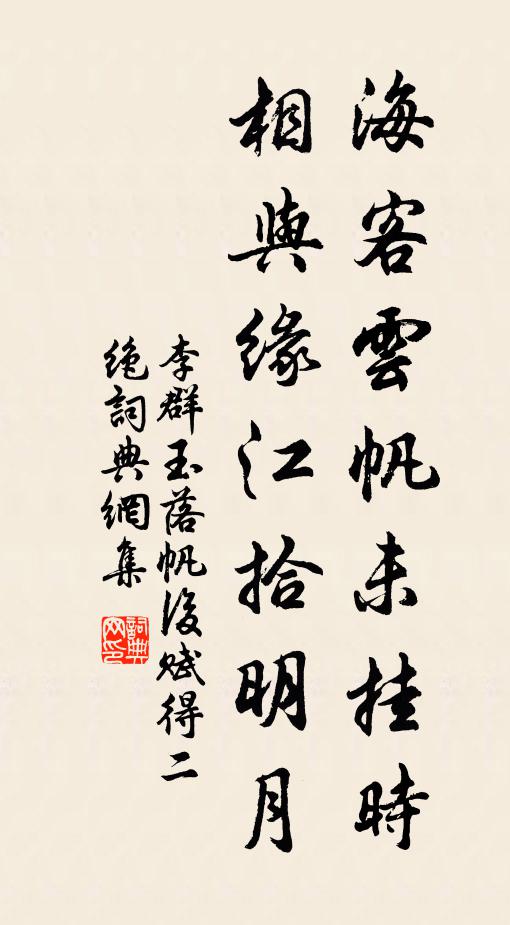 海客雲帆未挂時
相與緣江拾明月
李群玉落帆後賦得二
絕詞典網集
詞典
网印